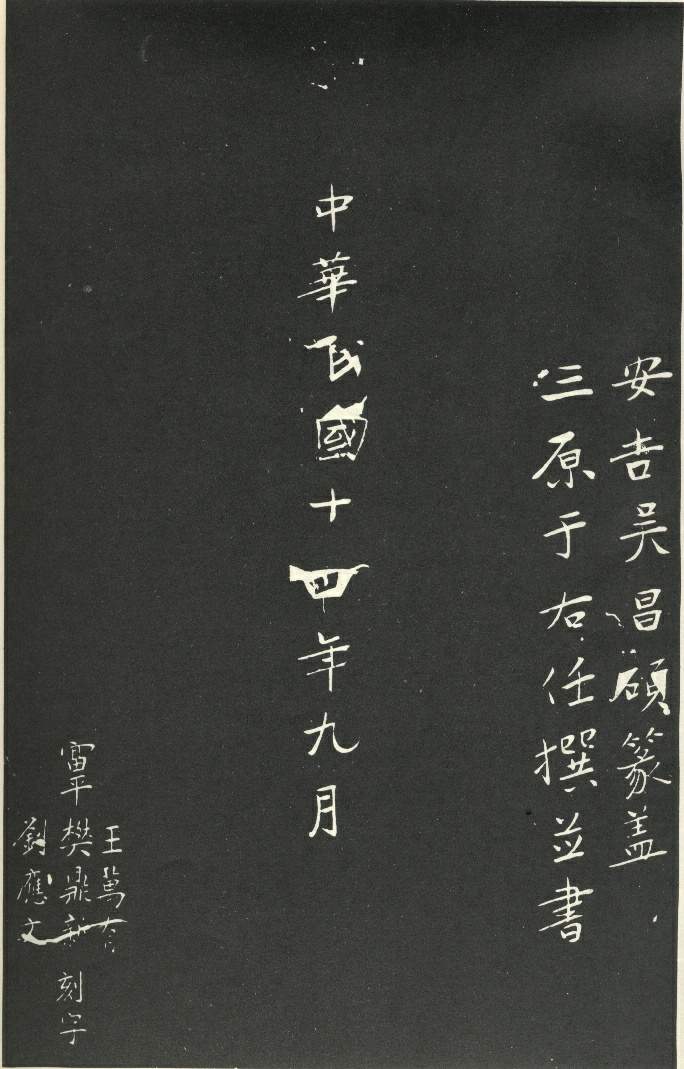 安吉吴昌碩篆盖
三原于右任撰並書
中華民國十四年九月
王萬
富平樊鼎新刻字
劉應文